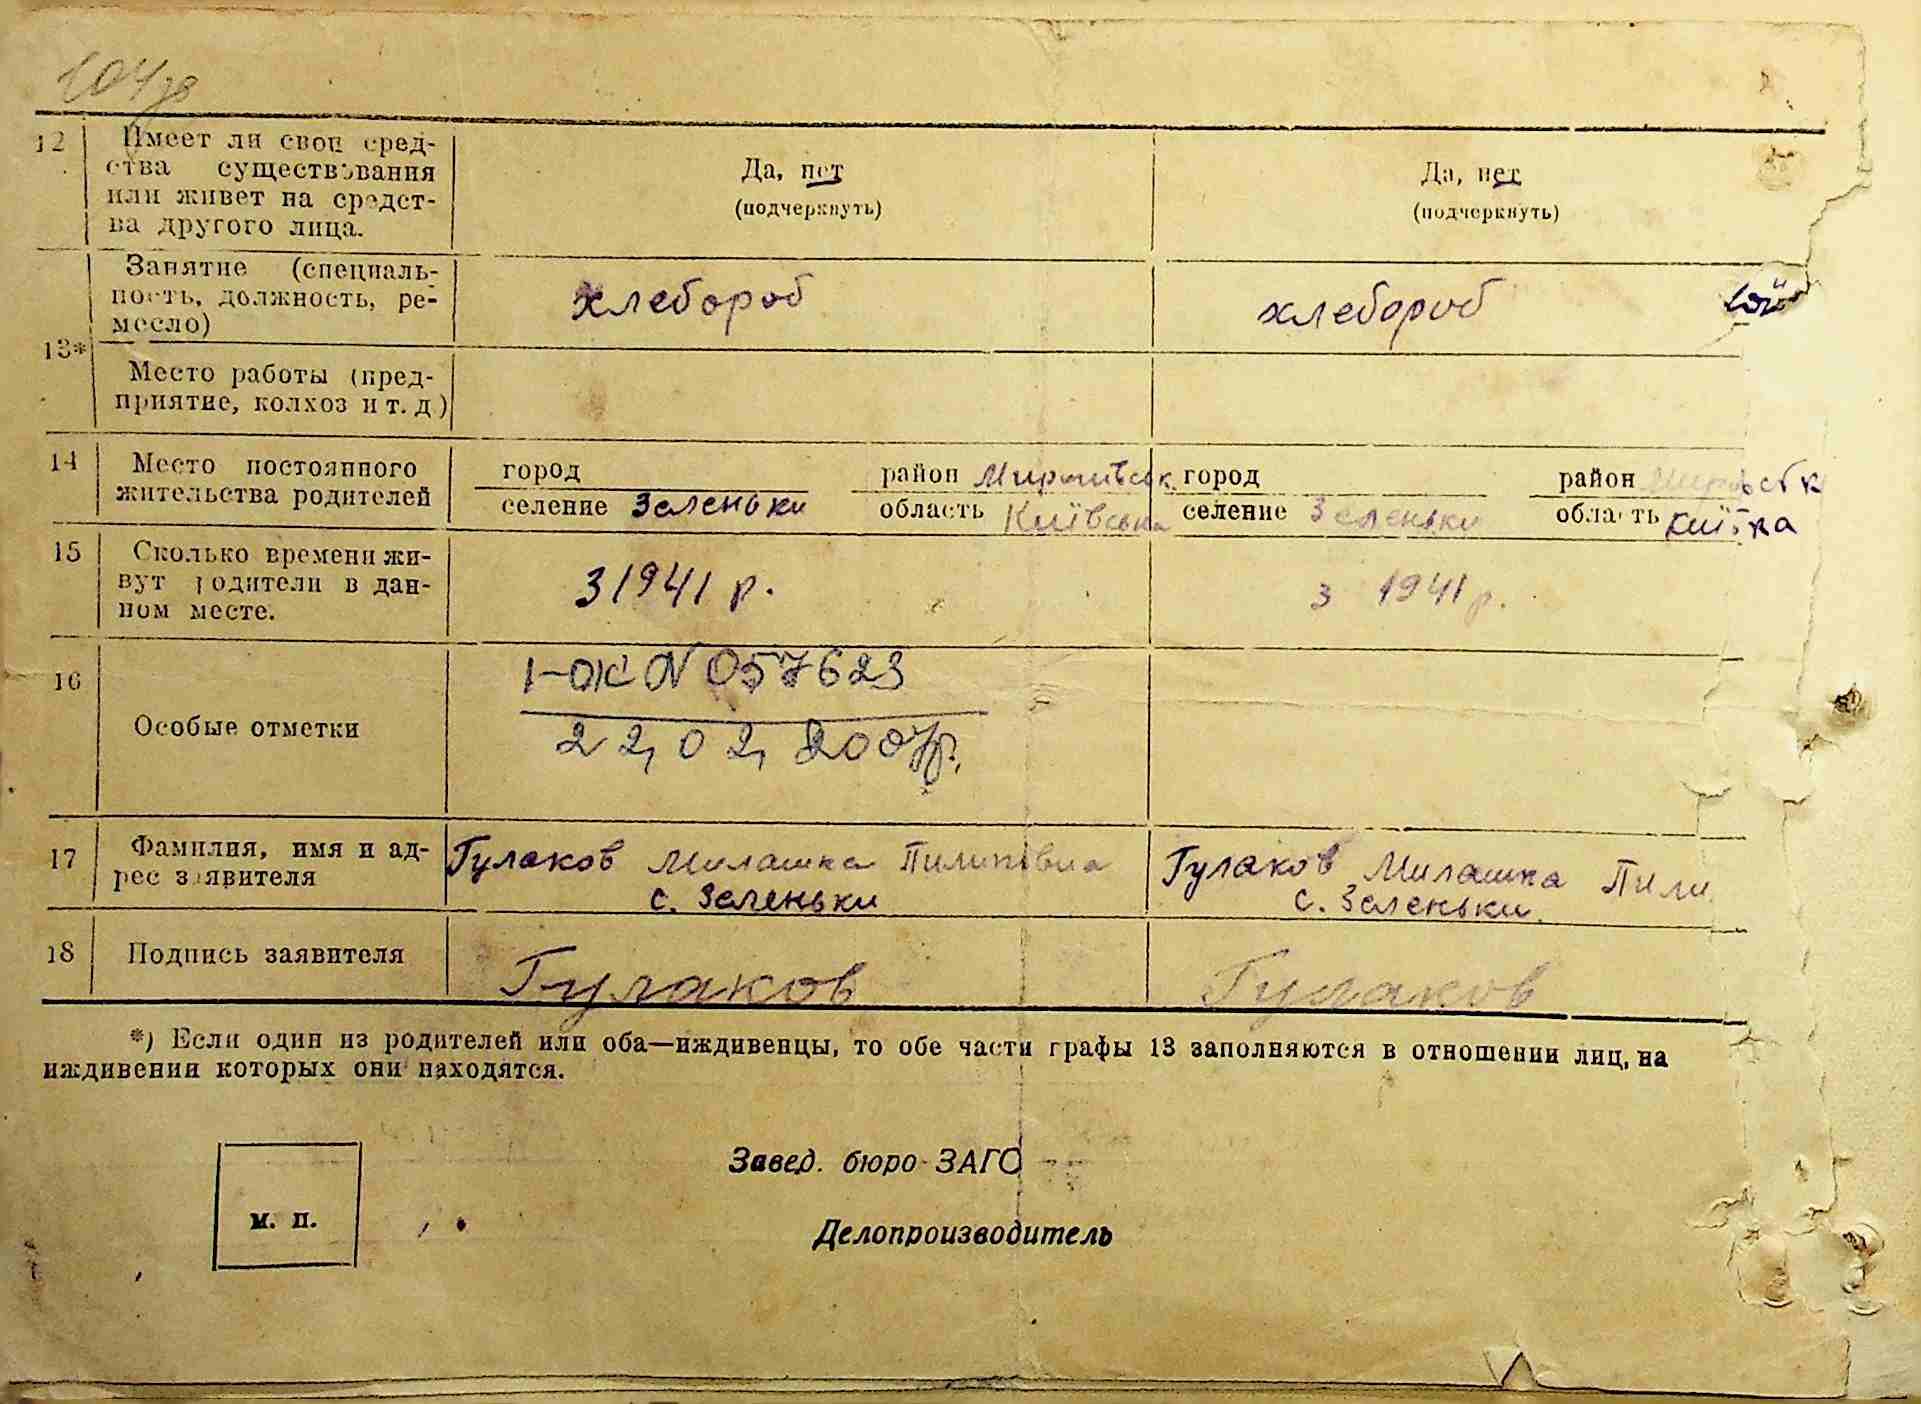 12 Имеет ли свои сред-
ства существования
или живет на средст-
ва другого лица.
Да, нет
(подчеркнуть)
Да, нет
(подчеркнуть)
13*
Занятие (специаль-
ность, должность, ре-
месло)
хлебороб
хлебороб
Место работы (пред-
приятие, колхоз и т. д)
14 Место постоянного
жительства родителей
город
район Миронівськ
селение Зеленьки
область Київська
город
район
селение Зеленьки
область Київка
15 Сколько времени жи-
вут родители в дан-
ном месте.
З 1941 р.
з 1941 р.
16 Особые отметки
1-ОК № 057623
22,02,2007р.
17 Фамилия, имя и ад-
рес заявителя
Гулаков Милашка Пилипівна
с. Зеленьки
Гулаков Милашка Пили
с. Зеленьки.
18 Подпись заявителя
Гулаков
Гулаков
*) Если один из родителей или оба—иждивенцы, то обе части графы 13 заполняются в отношении лиц, на
иждивении которых они находятся.
Завед. бюро ЗАГС
м. п.
Делопроизводитель